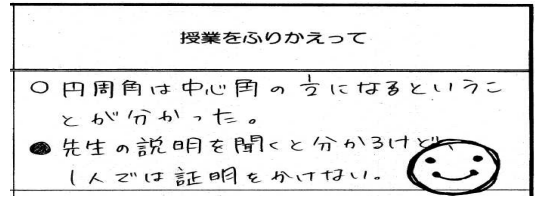 授業をふりかえって
○円周角は中心角の1/2になるというこ
とが分かった。
●先生の説明を聞くと分かるけど、
1人では証明をかけない。